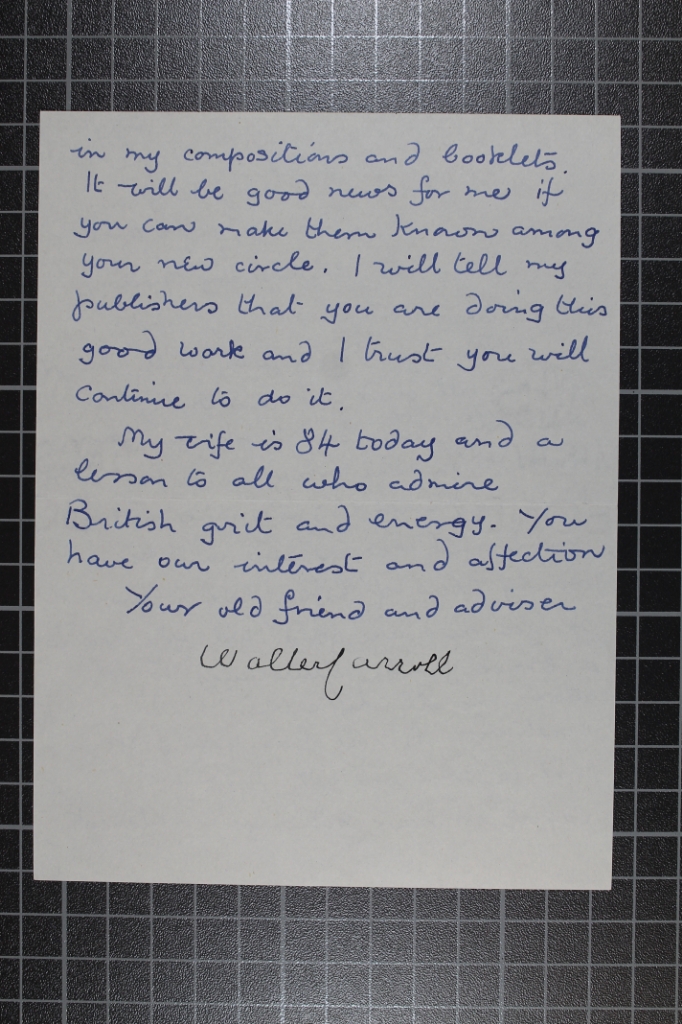 in my compositions and booklets.
It will be good news for me if
you can make them known among
your new circle. I will tell my
publishers that you are doing this
good work and I trust you will
continue to do it.
My wife is 84 today and a
lesson to all who admire
British grit and energy. You
have our interest and affection
Your old friend and adviser
Walter Carroll